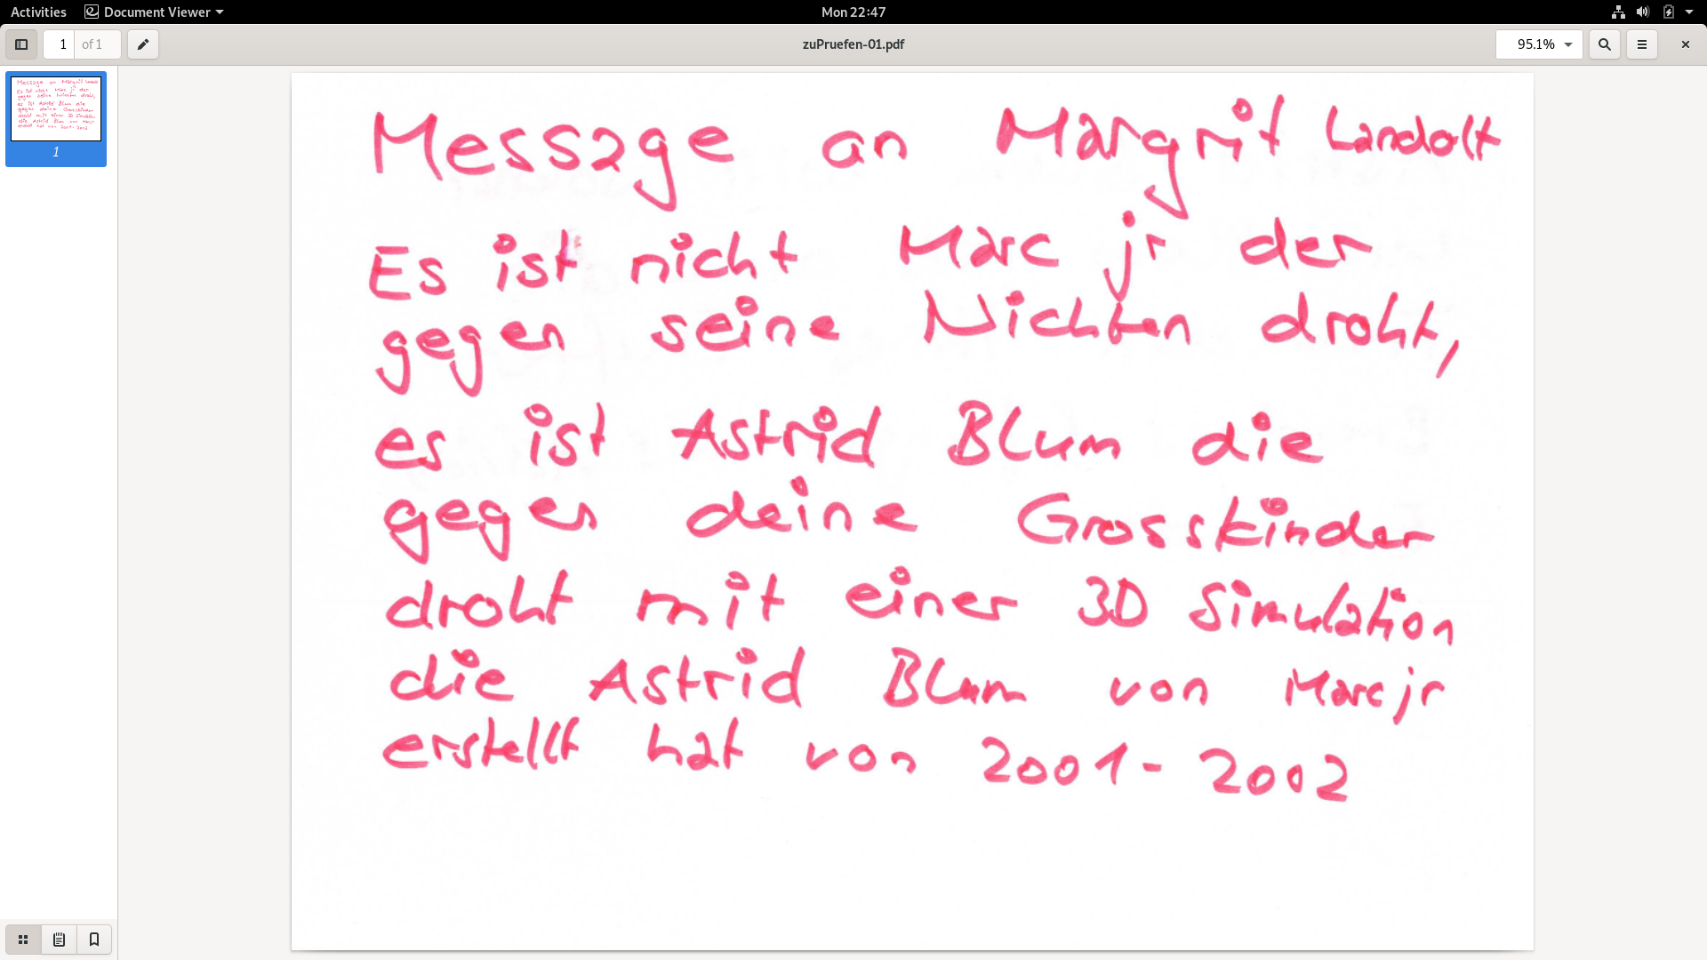 Activities Document Viewer Mon 22:47
1 of 1 zuPruefen-01.pdf 95.1%
Message an Margrit Landolt
Es ist nicht Marc jr der
gegen seine Nichten droht,
es ist Astrid Blum die
gegen deine Grosskinder
droht mit einer 3D Simulation
die Astrid Blum von Marc jr
erstellt hat von 2001- 2002
1